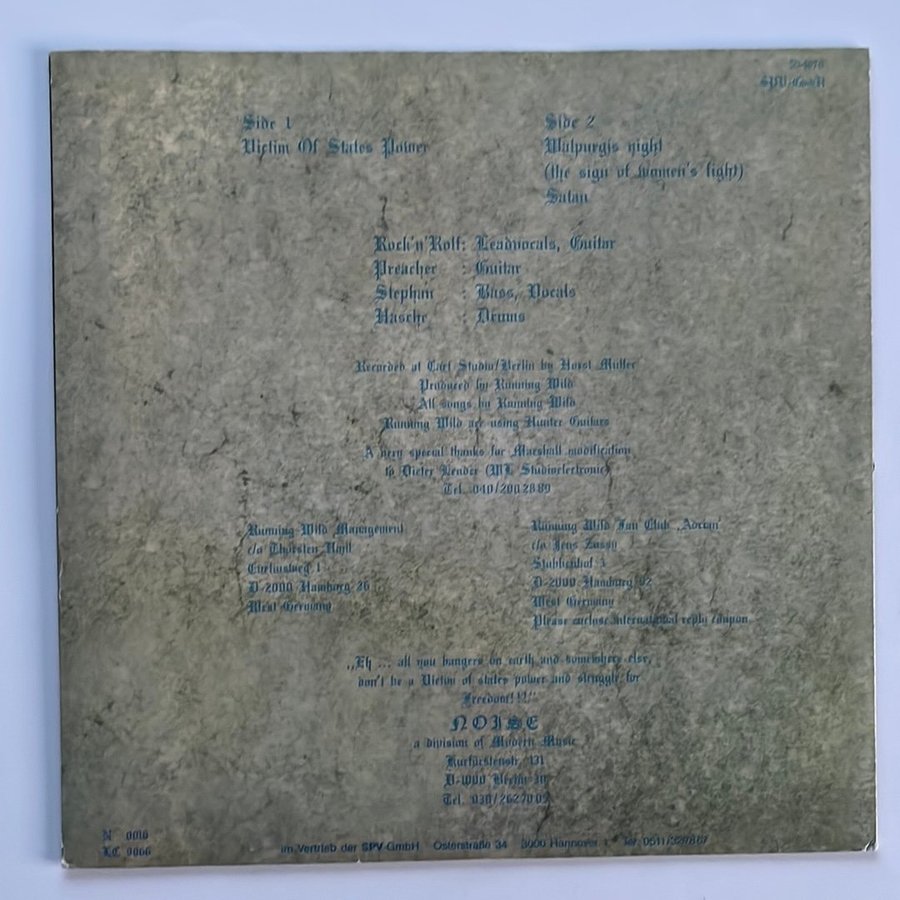 SPV-GmbH
Side 1
Victim Of States Power
Side 2
Walpurgis night
(the sign of women's fight)
Satan
Rock'n'Rolf: Leadvocals, Guitar
Preacher : Guitar
Stephan : Bass, Vocals
Hasche : Drums
Recorded at Caet Studio/Berlin by Horst Müller
Produced by Running Wild
All songs by Running Wild
Running Wild are using Hunter Guitars
A very special thanks for Marshall modification
to Dieter (ML Studioelectronic)
Tel. 040/200 28 89
Running Wild Management
c/o Thorsten
D-2000 Hamburg 26
West Germany
Running Wild Fan Club
c/o Jens
D-2000 Hamburg
West Germany
Please enclose international reply coupon
„Eh ... all you bangers on earth and somewhere else,
don't be a Victim of states power and struggle for
Freedom!!!!"
NOISE
a division of Modern Music
Kurfürstenstr. 131
D-1000 Berlin 30
Tel. 030/262 70 09
N 0010
LC 9066
im Vertrieb der SPV GmbH Osterstraße 34 3000 Hannover 1 Tel. 0511/